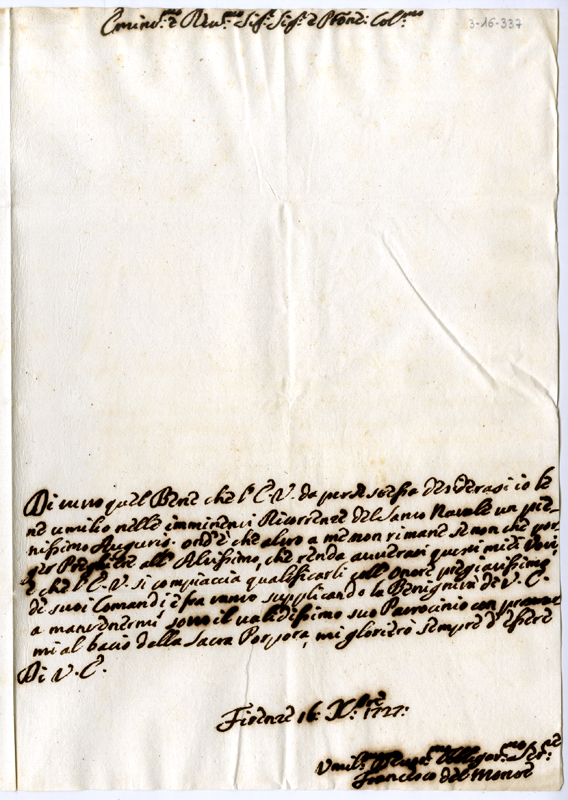 Emin.mo e Rev.mo Sig.r Sig.r e Pron.e Col.mo
3-16-337
Di tutto quel Bene che l'E.V. da per se stessa desiderasi io le
ne umilio nelle imminenti Ricorrenze del Santo Natale un pie-
nissimo Augurio. ond'è che altro a me non rimane se non che por-
ger Preghiere all'Altissimo, che renda avverati questi miei Voti,
e che l'E.V. si compiaccia qualificarli coll'Onore pregiatissimo
de suoi Comandi, e fra tanto supplicando la Benignità di V.E.
a mantenermi sotto il validissimo suo Patrocinio con
mi al bacio della Sacra Porpora, mi glorierò sempre d'essere
Di V.E.
Firenze 16: X.bre 1727:
Umil.mo Obligat.mo Ser.re
Francesco del Monte